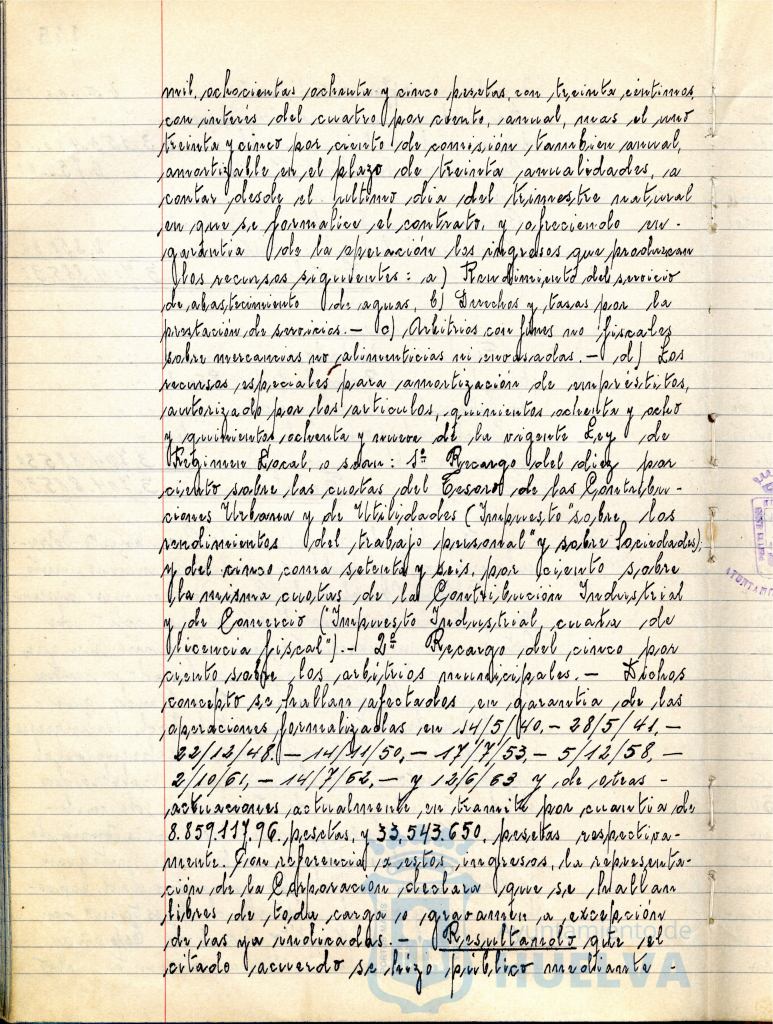 mil, ochocientas ochenta y cinco pesetas, con treinta céntimos,
con interés del cuatro por ciento, anual, mas el uno
treinta y cinco por ciento de comisión tambien anual,
amortizable en el plazo de treinta anualidades, a
contar desde el ultimo dia del trimestre natural
en que se formalice el contrato, y ofreciendo en-
garantia de la operación los ingresos que produzcan
los recursos siguientes: a) Rendimiento del servicio
de abastecimiento de aguas, b) Derechos y tasas por la
prestación de servicios.- c) Arbitrios con fines no fiscales
sobre mercancias no alimenticias ni envasadas.- d) Los
recursos especiales para amortización de empréstitos,
autorizado por los articulos, quinientos ochenta y ocho
y quinientos ochenta y nueve de la vigente Ley de
Regimen Local, o sean: 1º Recargo del diez por
ciento sobre las cuotas del Tesoro de las Contribu-
ciones Urbana y de Utilidades (Impuesto "sobre los
rendimientos del trabajo personal" y sobre Sociedades);
y del cinco coma setenta y seis, por ciento sobre
la misma cuotas de la Contribución Industrial
y de Comercio ("Impuesto Industrial, cuota de
licencia fiscal").- 2º Recargo del cinco por
ciento sobre los arbitrios municipales.- Dichos
concepto se hallan afectados en garantia de las
operaciones formalizadas en 14/5/40,- 28/5/41,-
22/12/48.- 14/11/50,- 17/7/53,- 5/12/58,-
2/10/61,- 14/7/62,- y 12/6/63 y de otras -
actuaciones actualmente en tramite por cuantia de
8.859.117,96, pesetas, y 33,543.650, pesetas respectiva-
mente. Con referencia a estos ingresos, la representa-
ción de la Corporación declara que se hallan
libres de toda carga o gravamén a excepción
de las ya indicadas.- Resultando que el
citado acuerdo se hizo público mediante -
Ayuntamiento de
HUELVA